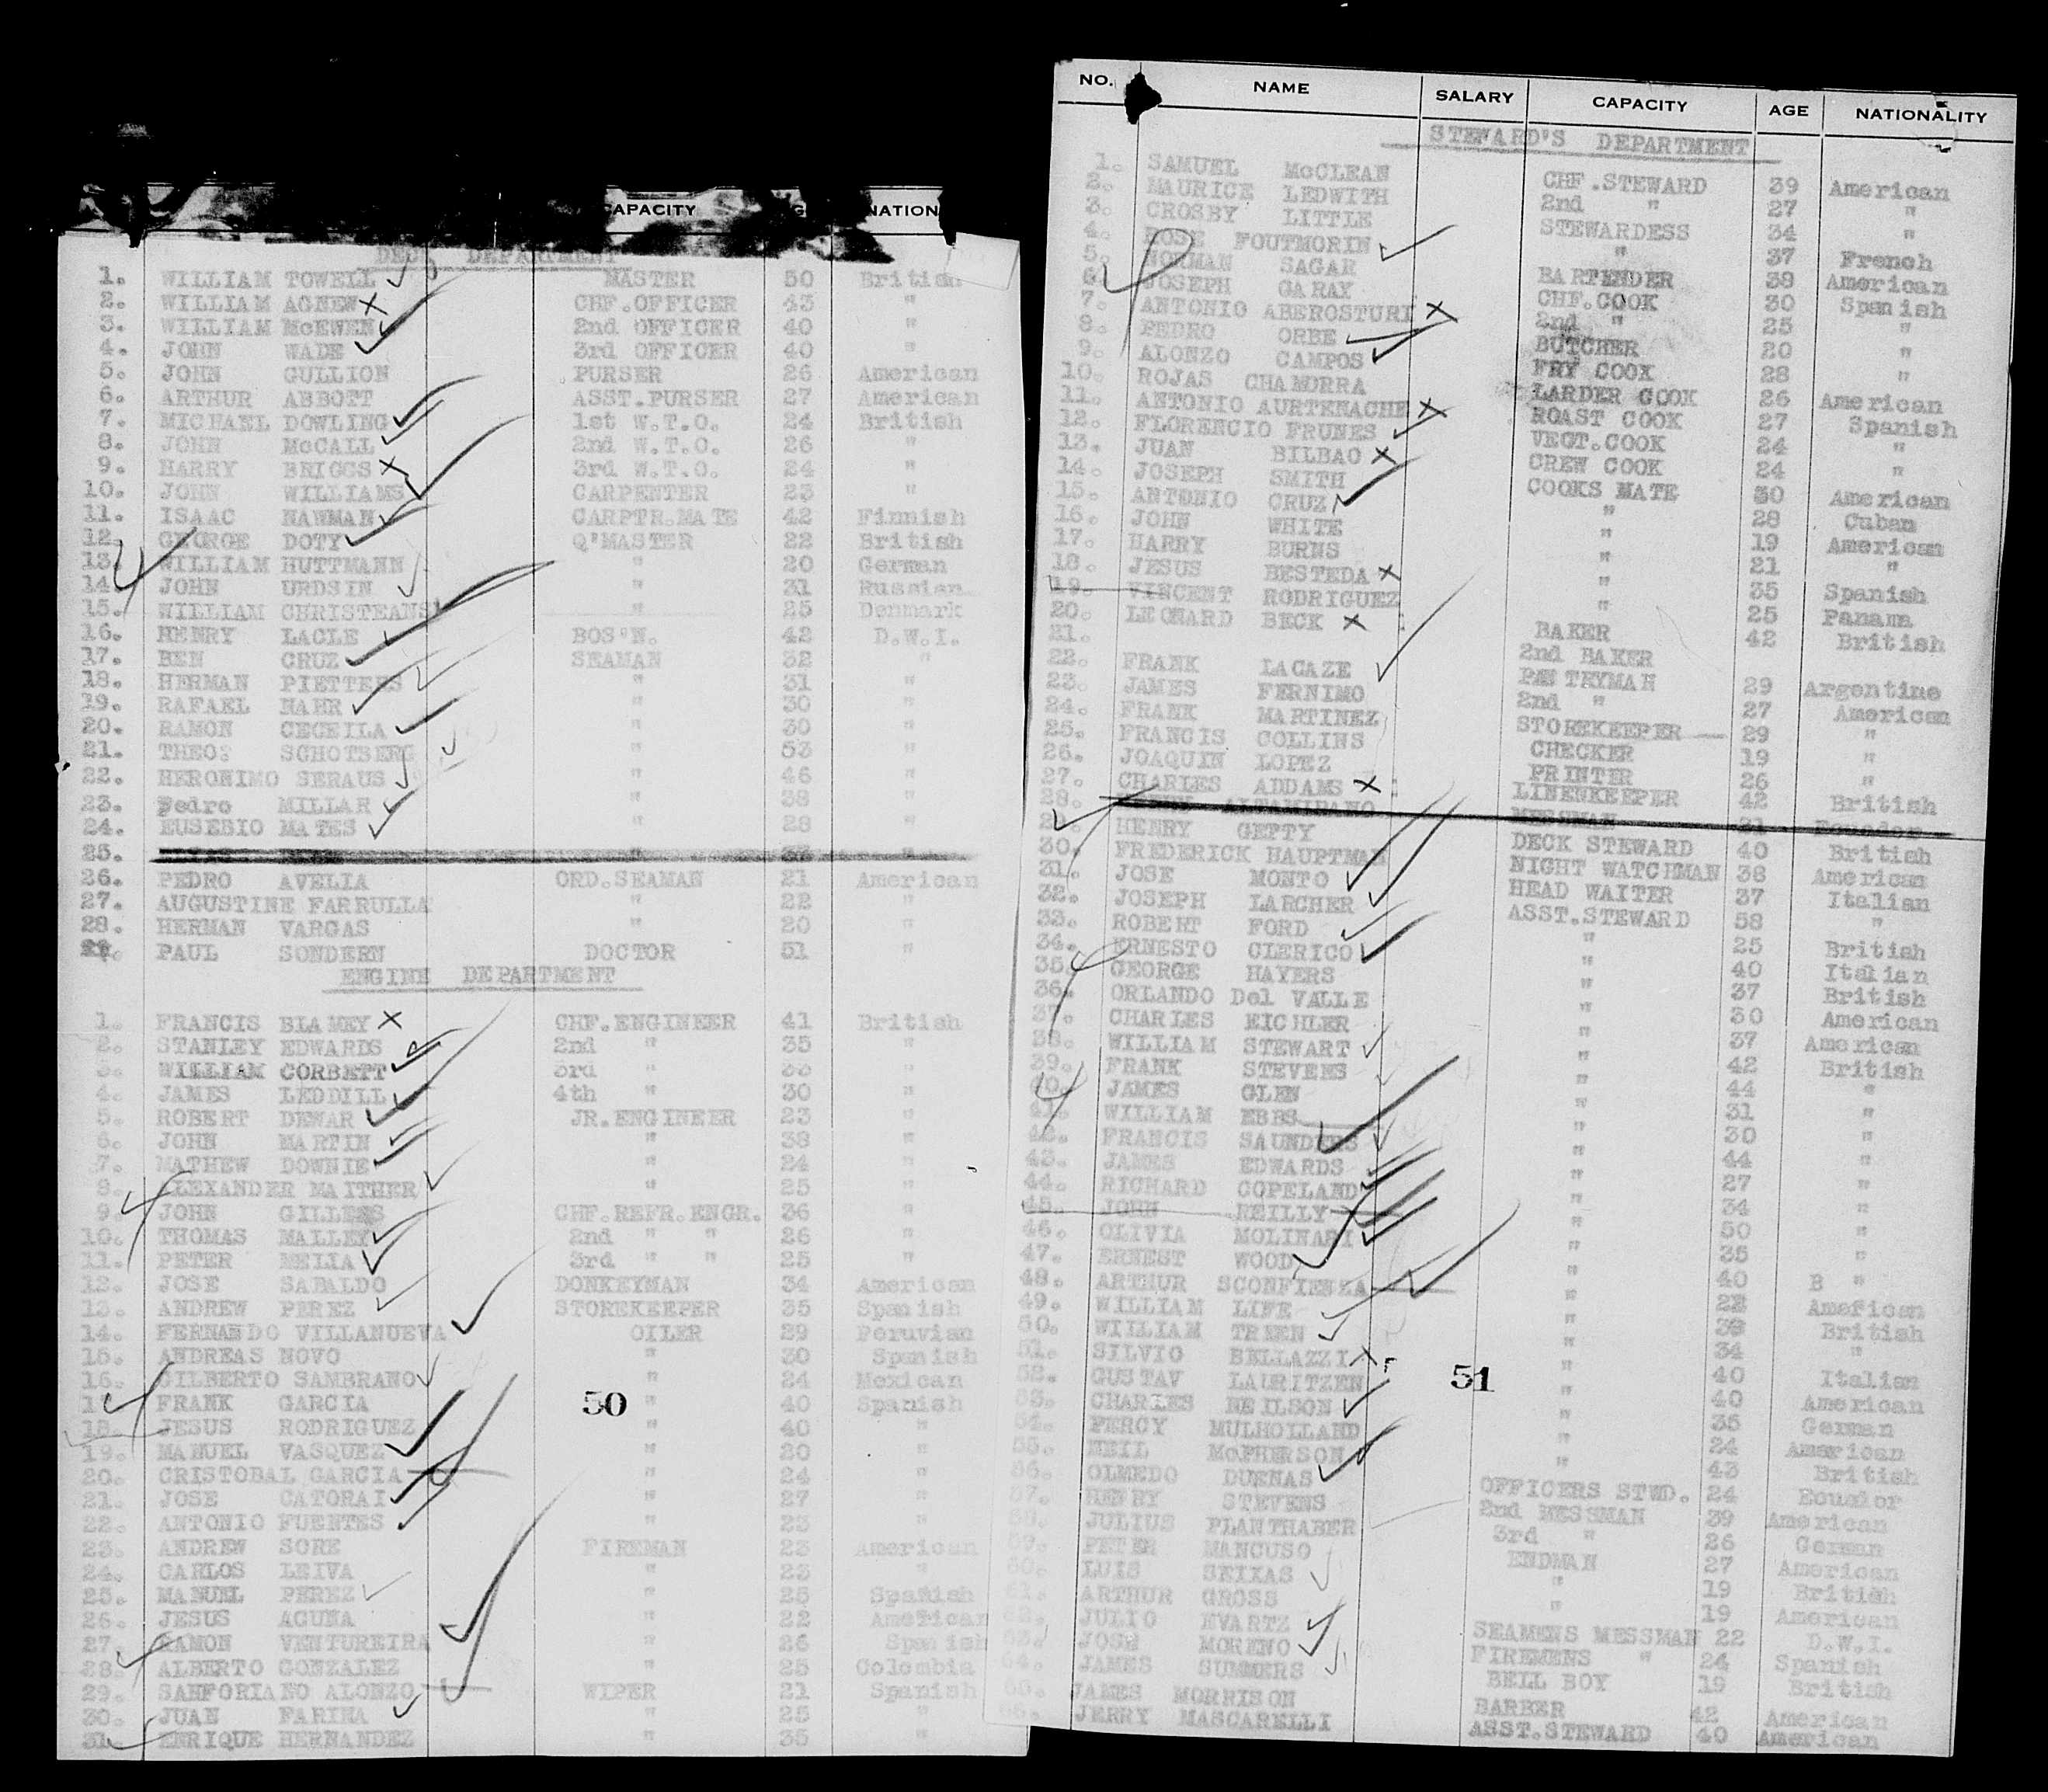 CAPACITY NATION
DECK DEPARTMENT
1. WILLIAM TOWELL MASTER 50 British
2. WILLIAM AGNEW CHF.OFFICER 43 "
3. WILLIAM McEWEN 2nd OFFICER 40 "
4. JOHN WADE 3rd OFFICER 40 "
5. JOHN GULLION PURSER 26 American
6. ARTHUR ABBOTT ASST.PURSER 27 American
7. MICHAEL DOWLING 1st W.T.O. 24 British
8. JOHN McCALL 2nd W.T.O. 26 "
9. HARRY BRIGGS 3rd W.T.O. 24 "
10. JOHN WILLIAMS CARPENTER 23 "
11. ISAAC NAWMAN CARPTR.MATE 42 Finnish
12. GEORGE DOTY Q'MASTER 22 British
13. WILLIAM HUTTMANN " 20 German
14. JOHN URDSIN " 31 Russian
15. WILLIAM CHRISTEANS " 25 Denmark
16. HENRY LACLE BOS'N. 42 D.W.I.
17. BEN CRUZ SEAMAN 32 "
18. HERMAN PIETTERS " 31 "
19. RAFAEL NAHR " 30 "
20. RAMON CECEILA " 30 "
21. THEO: SCHOTBERG " 53 "
22. HERONIMO SERAUS " 46 "
23. Pedro MILLAR " 38 "
24. EUSEBIO MATES " 28 "
25. "
26. PEDRO AVELIA ORD.SEAMAN 21 American
27. AUGUSTINE FARRULLA " 22 "
28. HERMAN VARGAS " 20 "
29. PAUL SONDERN DOCTOR 51 "
ENGINE DEPARTMENT
1. FRANCIS BLAMEY CHF.ENGINEER 41 British
2. STANLEY EDWARDS 2nd " 35 "
3. WILLIAM CORBETT 3rd " 33 "
4. JAMES LEDDILL 4th " 30 "
5. ROBERT DEWAR JR.ENGINEER 23 "
6. JOHN MARTIN " 38 "
7. MATHEW DOWNIE " 24 "
8. ALEXANDER MAITHER " 25 "
9. JOHN GILLESS CHF.REFR.ENGR. 36 "
10. THOMAS MALLEY 2nd " " 26 "
11. PETER MELIA 3rd " " 25 "
12. JOSE SABALDO DONKEYMAN 34 American
13. ANDREW PEREZ STOREKEEPER 35 Spanish
14. FERNANDO VILLANUEVA OILER 29 Peruvian
15. ANDREAS NOVO " 30 Spanish
16. GILBERTO SAMBRANO " 24 Mexican
17. FRANK GARCIA " 40 Spanish
50
18. JESUS RODRIGUEZ " 40 "
19. MANUEL VASQUEZ " 20 "
20. CRISTOBAL GARCIA " 24 "
21. JOSE CATORAI " 27 "
22. ANTONIO FUENTES " 25 "
23. ANDREW SORE FIREMAN 23 American
24. CARLOS LEIVA " 23 "
25. MANUEL PEREZ " 25 Spanish
26. JESUS ACUNA " 22 American
27. RAMON VENTUREIRA " 26 Spanish
28. ALBERTO GONZALEZ " 25 Colombia
29. SANFORIANO ALONZO WIPER 21 Spanish
30. JUAN FARINA " 25 "
31. ENRIQUE HERNANDEZ " 35 "
NO. NAME SALARY CAPACITY AGE NATIONALITY
STEWARD'S DEPARTMENT
1. SAMUEL McCLEAN CHF.STEWARD 39 American
2. MAURICE LEDWITH 2nd " 27 "
3. CROSBY LITTLE STEWARDESS 34 "
4. ROSE FOUTMORIN " 37 French
5. NORMAN SAGAR BARTENDER 38 American
6. JOSEPH GARAY CHF.COOK 30 Spanish
7. ANTONIO ABEROSTURI 2nd " 25 "
8. PEDRO ORBE BUTCHER 20 "
9. ALONZO CAMPOS FRY COOK 28 "
10. ROJAS CHAMORRA LARDER COOK 26 American
11. ANTONIO AURTENACHE ROAST COOK 27 Spanish
12. FLORENCIO FRUNES VEGT.COOK 24 "
13. JUAN BILBAO CREW COOK 24 "
14. JOSEPH SMITH COOKS MATE 30 American
15. ANTONIO CRUZ " 28 Cuban
16. JOHN WHITE " 19 American
17. HARRY BURNS " 21 "
18. JESUS BESTEDA " 35 Spanish
19. VINCENT RODRIGUEZ " 25 Panama
20. LEONARD BECK BAKER 42 British
21. 2nd BAKER
22. FRANK LACAZE PANTRYMAN 29 Argentine
23. JAMES FERNIMO 2nd " 27 American
24. FRANK MARTINEZ STOREKEEPER 29 "
25. FRANCIS COLLINS CHECKER 19 "
26. JOAQUIN LOPEZ PRINTER 26 "
27. CHARLES ADDAMS LINENKEEPER 42 British
28. ALTAMIRANO MESSMAN 21 Ecuador
29. HENRY GETTY DECK STEWARD 40 British
30. FREDERICK HAUPTMAN NIGHT WATCHMAN 38 American
31. JOSE MONTO HEAD WAITER 37 Italian
32. JOSEPH LARCHER ASST.STEWARD 58 "
33. ROBERT FORD " 25 British
34. ERNESTO CLERICO " 40 Italian
35. GEORGE HAYERS " 37 British
36. ORLANDO Del VALLE " 30 American
37. CHARLES EICHLER " 37 American
38. WILLIAM STEWART " 42 British
39. FRANK STEVENS " 44 "
40. JAMES GLEN " 31 "
41. WILLIAM EBBS " 30 "
42. FRANCIS SAUNDERS " 44 "
43. JAMES EDWARDS " 27 "
44. RICHARD COPELAND " 34 "
45. JOHN REILLY " 50 "
46. OLIVIA MOLINARI " 35 "
47. ERNEST WOOD " 40 B "
48. ARTHUR SCONFIENZA " 22 American
49. WILLIAM LIFE " 38 British
50. WILLIAM TREEN " 34 "
51. SILVIO BELLAZZI " 40 Italian
51
52. GUSTAV LAURITZEN " 40 American
53. CHARLES NEILSON " 35 German
54. PERCY MULHOLLAND " 24 American
55. NEIL McPHERSON " 43 British
56. OLMEDO DUENAS OFFICERS STWD. 24 Ecuador
57. HENRY STEVENS 2nd MESSMAN 39 American
58. JULIUS PLANTHABER 3rd " 26 German
59. PETER MANCUSO ENDMAN 27 American
60. LUIS SEIXAS " 19 British
61. ARTHUR GROSS " 19 American
62. JULIO EVARTZ SEAMENS MESSMAN 22 D.W.I.
63. JOSE MORENO FIREMENS " 24 Spanish
64. JAMES SUMMERS BELL BOY 19 British
65. JAMES MORRISON BARBER 42 American
66. JERRY MASCARELLI ASST.STEWARD 40 American